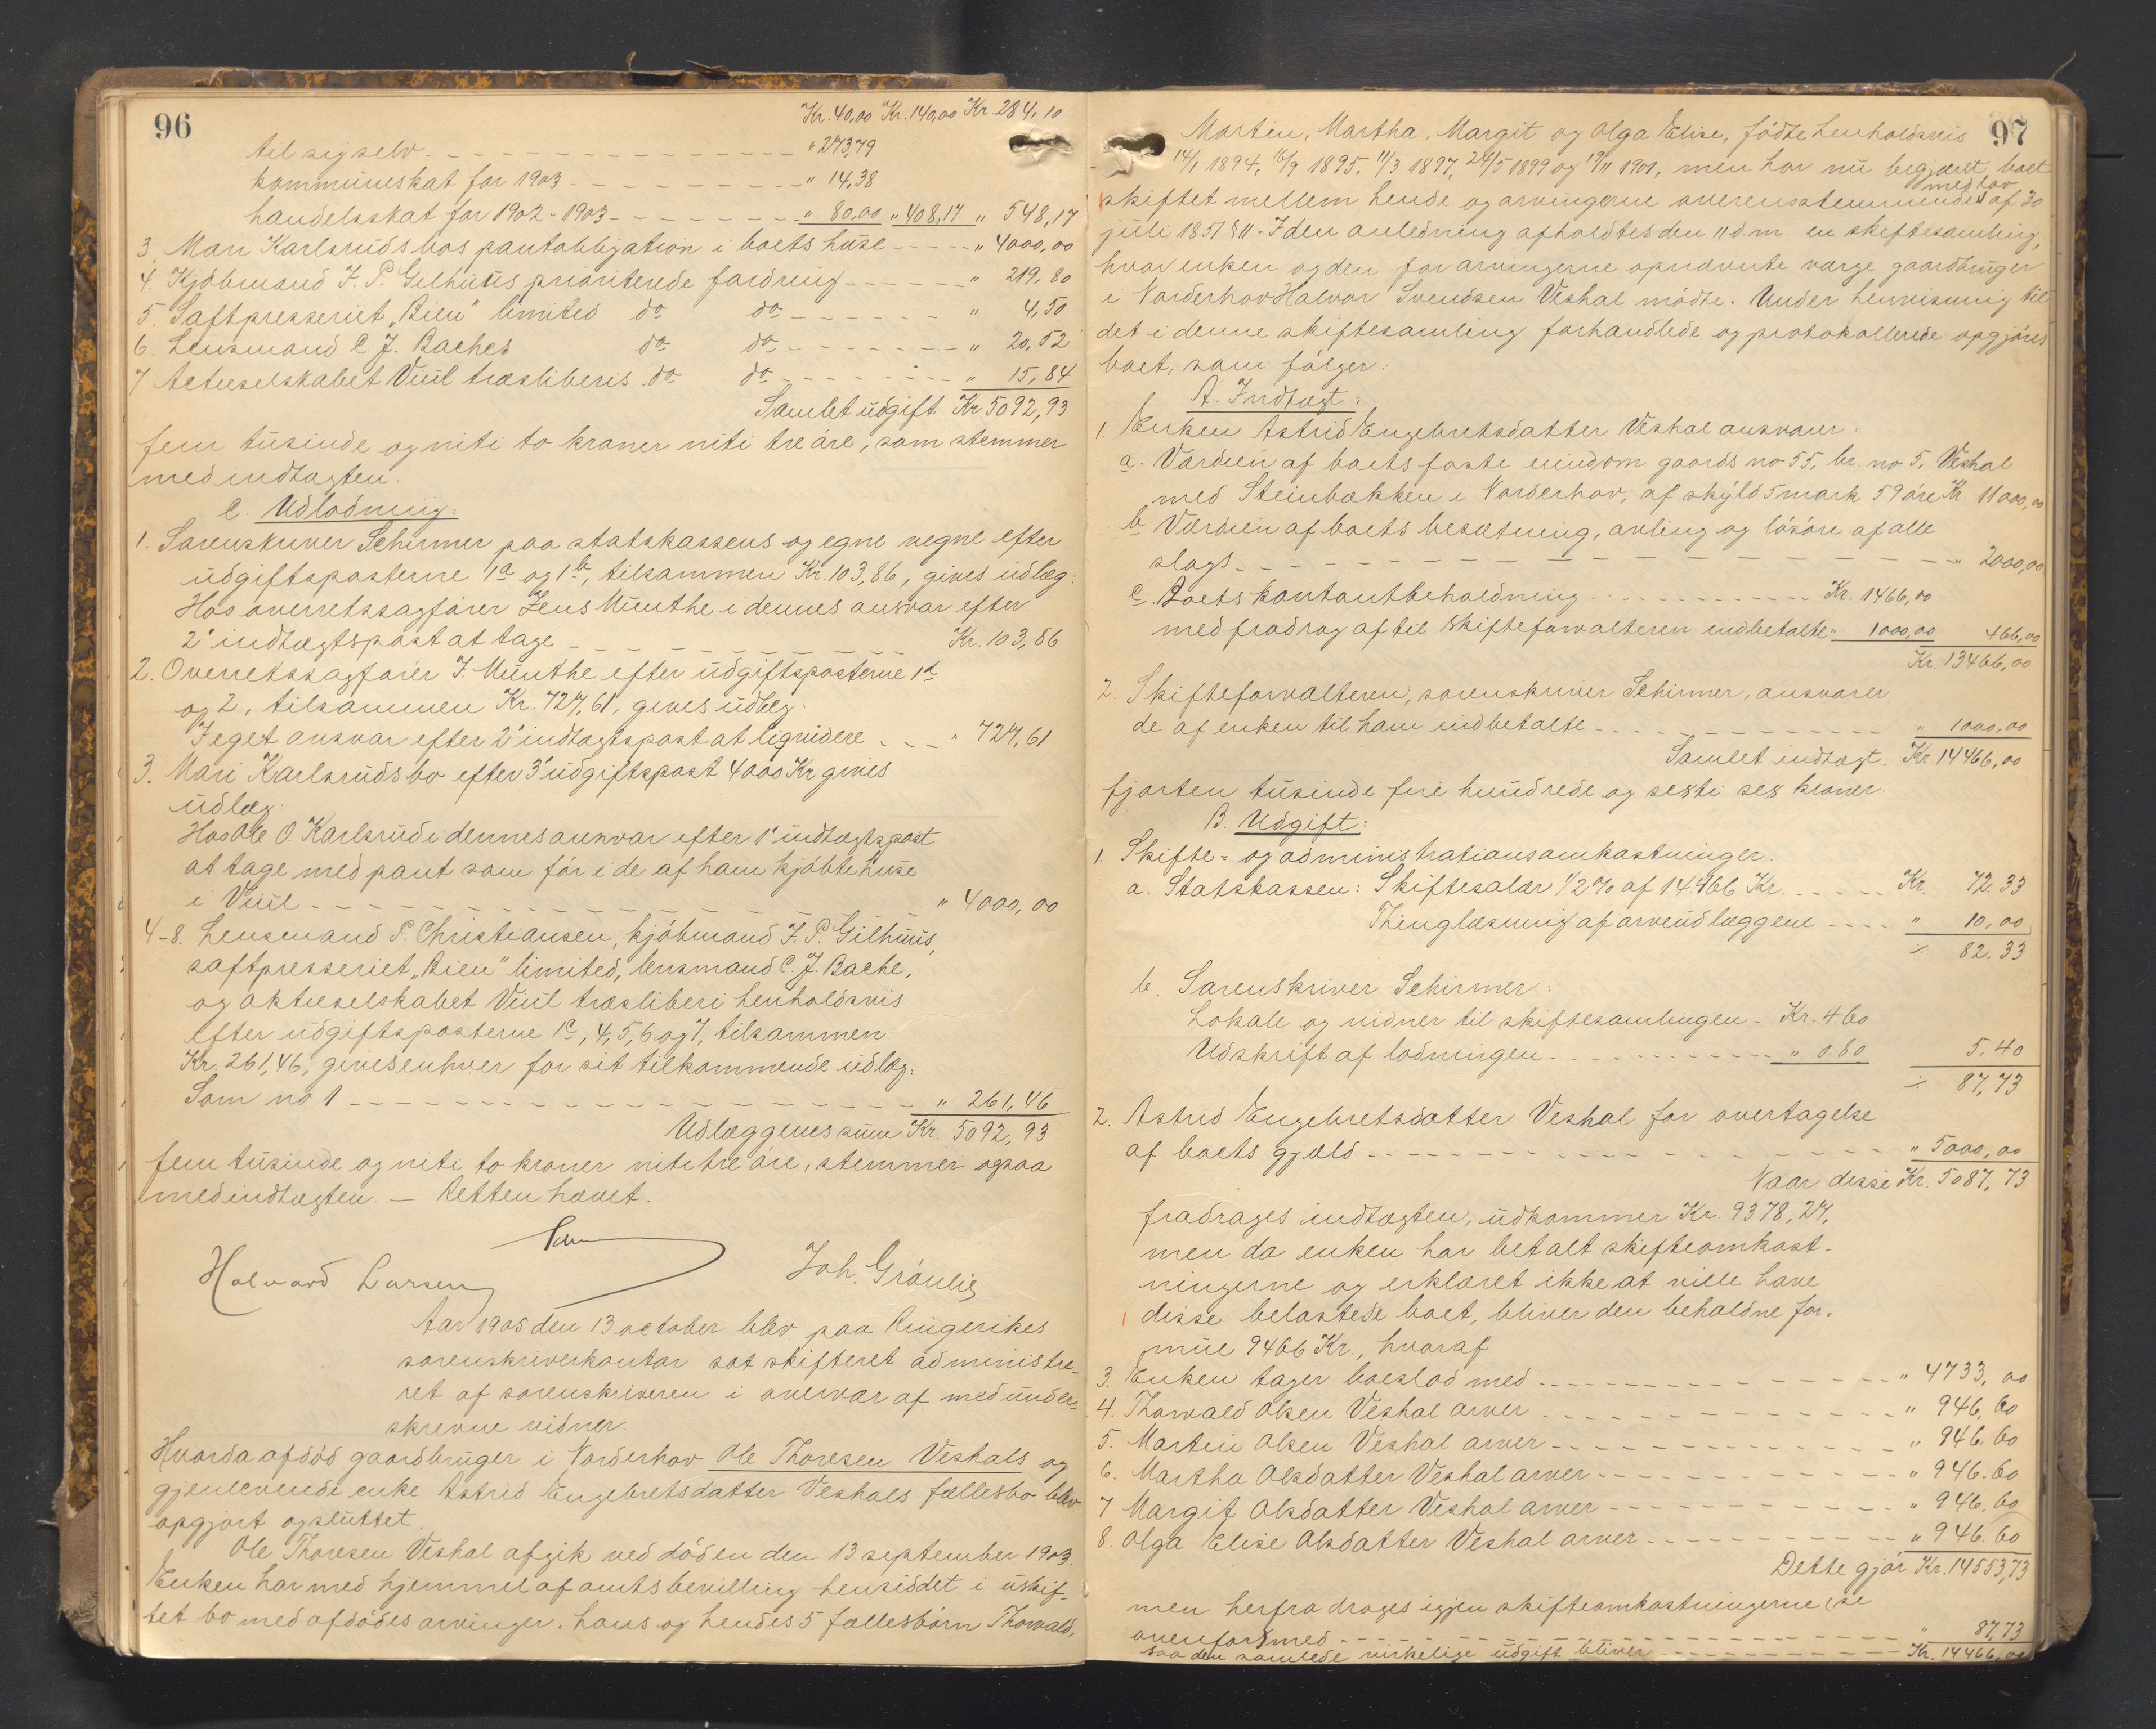 96
Kr. 40,00 Kr. 140,00 Kr. 284,10
til sig selv " 273,79
kommuneskat for 1903 " 14,38
handelsskat for 1902-1903 " 80,00 " 408,17 " 548,17
3. Mari Karlsruds bos pantobligation i boets huse " 4000,00
4. Kjøbmand J. P. Gilhuus prioriterede fordring " 219,80
5. Saftpresseriet „Bien" limited do do " 4,50
6. Lensmand C. J. Baches do do " 20,52
7 Actieselskabet Viul træsliberis do do " 15,84
Samlet udgift Kr 5092,93
fem tusinde og niti to kroner niti tre øre, som stemmer
med indtægten.
C. Udlodning:
1. Sorenskriver Schirmer paa statskassens og egne vegne efter
udgiftsposterne 1a og 1b, tilsammen Kr. 103,86, gives udlæg:
Hos overretssagfører Jens Munthe i dennes ansvar efter
2' indtægtspost at tage Kr. 103,86
2. Overretssagfører J. Munthe efter udgiftsposterne 1d
og 2, tilsammen Kr. 727,61, gives udlæg:
I eget ansvar efter 2' indtægtspost at liqvidere " 727,61
3. Mari Karlsruds bo efter 3' udgiftspost 4000 Kr gives
udlæg:
Hos Ole O. Karlsrud i dennes ansvar efter 1' indtægtspost
at tage med pant som før i de af ham kjøbte huse
i Viul " 4000,00
4-8. Lensmand P. Christiansen, kjøbmand J. P. Gilhuus,
saftpresseriet „Bien" limited, lensmand C. J. Bache,
og aktieselskabet Viul træsliberi henholdsvis
efter udgiftsposterne 1c, 4, 5, 6 og 7, tilsammen
Kr. 261,46, gives enhver for sit tilkommende udlæg:
Som no 1 " 261,46
Udlæggenes sum Kr. 5092,93
fem tusinde og niti to kroner niti tre øre, stemmer ogsaa
med indtægten. — Retten hævet.
Halvard Larsen Joh. Grønlie
Aar 1905 den 13 october blev paa Ringerikes
sorenskriverkontor sat skifteret administre-
ret af sorenskriveren i overvær af medunder-
skrevne vidner.
Hvorda afdød gaardbruger i Norderhov Ole Thoresen Veshals og
gjenlevende enke Astrid Engebretsdatter Veshals fællesbo blev
opgjort og sluttet.
Ole Thoresen Veshal afgik ved døden den 13 september 1903.
Enken har med hjemmel af amtsbevilling hensiddet i uskif-
tet bo med afdødes arvinger. hans og hendes 5 fællesbørn Thorvald,
97
Martin, Martha, Margit og Olga Elise, fødte henholdsvis
14/1 1894, 16/9 1895, 11/3 1897, 24/5 1899 og 19/11 1901, men har nu begjæret boet
skiftet mellem hende og arvingerne overensstemmende med lov af 30
juli 1851 § 11. I den anledning afholdtes den 11 d.m. en skiftesamling,
hvor enken og den for arvingerne opnævnte værge gaardbruger
i Norderhov Halvor Svendsen Veshal mødte. Under henvisning til
det i denne skiftesamling forhandlede og protokollerede opgjøres
boet, som følger:
A. Indtægt:
1. Enken Astrid Engebretsdatter Veshal ansvarer:
a. Værdien af boets faste eiendom gaards no 55, br. no 5, Veshal
med Steinbækken i Norderhov, af skyld 5 mark 59 øre Kr. 11000,00
b. Værdien af boets besætning, avling og løsøre af alle
slags " 2000,00
c. Boets kontantbeholdning Kr. 1466,00
med fradrag af til skifteforvalteren indbetalte " 1000,00 466,00
Kr. 13466,00
2. Skifteforvalteren, sorenskriver Schirmer, ansvarer
de af enken til ham indbetalte " 1000,00
Samlet indtægt. Kr. 14466,00
fjorten tusinde fire hundrede og seksti seks kroner.
B. Udgift:
1. Skifte- og administrationsomkostninger.
a. Statskassen: Skiftesalær 1/2% af 14466 Kr. Kr. 72.33
Thinglæsning af arveudlæggene " 10,00
÷ 82.33
b. Sorenskriver Schirmer:
Lokale og vidner til skiftesamlingen Kr. 4.60
Udskrift af lodningen " 0.80 5.40
÷ 87,73
2. Astrid Engebretsdatter Veshal for overtagelse
af boets gjæld " 5000,00
Naar disse Kr. 5087,73
fradrages indtægten, udkommer Kr. 9378,27,
men da enken har betalt skifteomkost-
ningerne og erklæret ikke at ville have
disse belastede boet, bliver den beholdne for-
mue 9466 Kr., hvoraf
3. Enken tager boeslod med " 4733,00
4. Thorvald Olsen Veshal arver " 946,60
5. Martin Olsen Veshal arver " 946.60
6. Martha Olsdatter Veshal arver " 946.60
7 Margit Olsdatter Veshal arver " 946.60
8. Olga Elise Olsdatter Veshal arver " 946.60
Dette gjør Kr. 14553,73
men herfra drages igjen skifteomkostningerne (se
ovenfor) med " 87,73
saa den samlede virkelige udgift bliver Kr. 14466,00